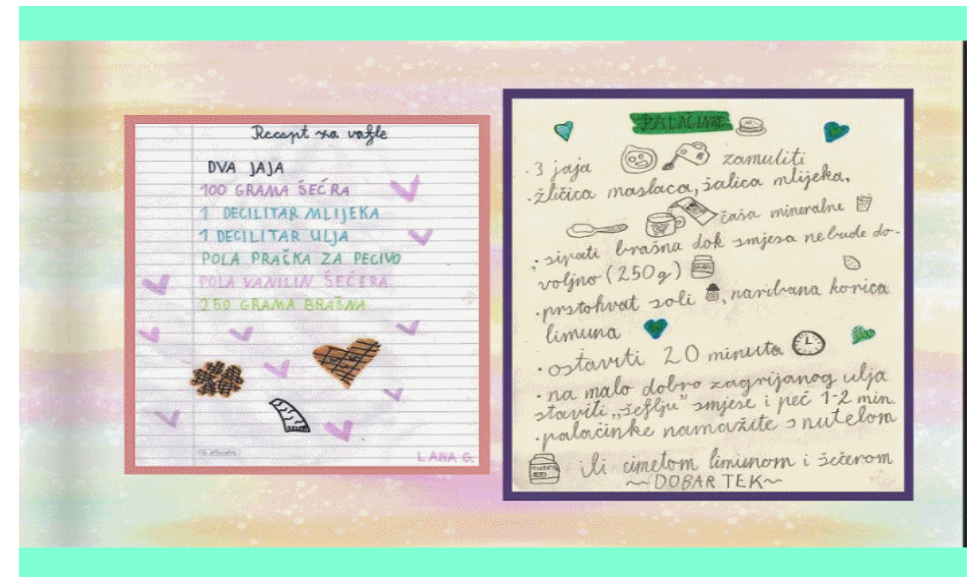 Recept za vafle
DVA JAJA
100 GRAMA ŠEĆRA
1 DECILITAR MLIJEKA
1 DECILITAR ULJA
POLA PRAČKA ZA PECIVO
POLA VANILIN ŠEĆERA
250 GRAMA BRAŠNA
LANA G.
PALAČINKE
· 3 jaja zamutiti
· žličica maslaca, šalica mlijeka,
čaša mineralne
· sipati brašna dok smjesa ne bude do-
voljno (250g)
· prstohvat soli, naribana korica
limuna
· ostaviti 20 minuta
· na malo dobro zagrijanog ulja
staviti „šeflju" smjese i peč 1-2 min.
· palačinke namažite s nutelom
ili cimetom limunom i šečerom
~DOBAR TEK~